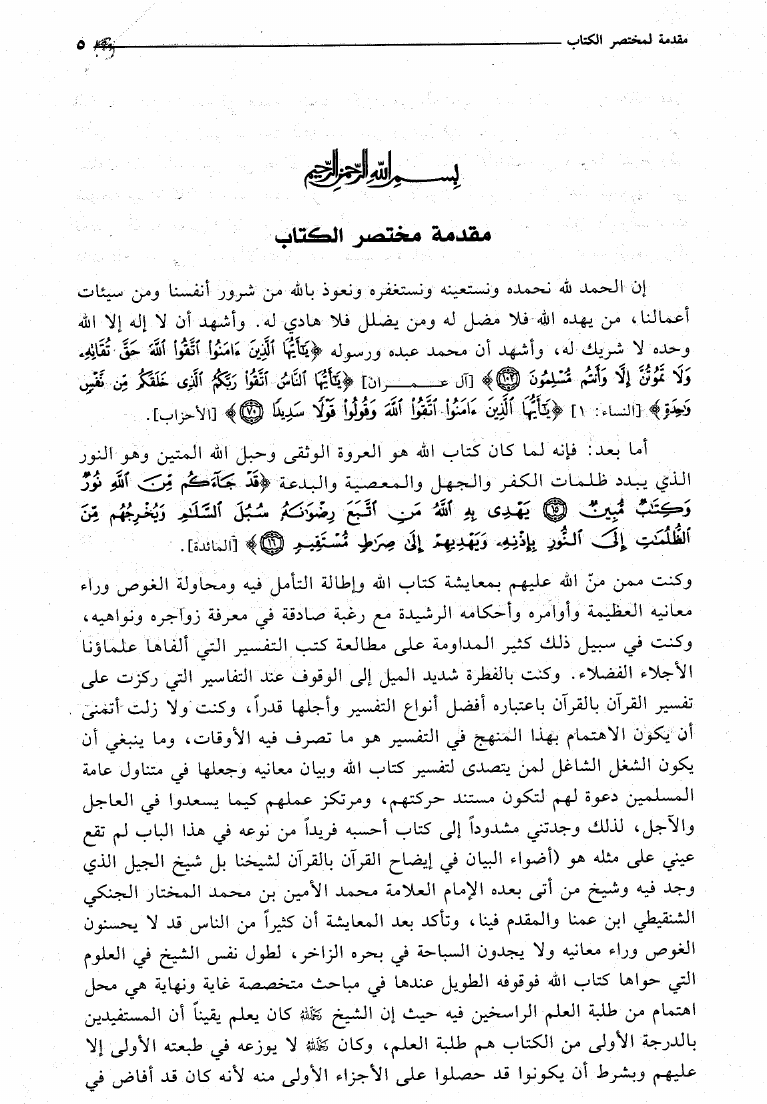 مقدمة لمختصر الكتاب ٥
بسم الله الرحمن الرحيم
مقدمة مختصر الكتاب
إن الحمد لله نحمده ونستعينه ونستغفره ونعوذ بالله من شرور أنفسنا ومن سيئات
أعمالنا، من يهده الله فلا مضل له ومن يضلل فلا هادي له. وأشهد أن لا إله إلا الله
وحده لا شريك له، وأشهد أن محمد عبده ورسوله ﴿يَٰٓأَيُّهَا ٱلَّذِينَ ءَامَنُوا۟ ٱتَّقُوا۟ ٱللَّهَ حَقَّ تُقَاتِهِۦ
وَلَا تَمُوتُنَّ إِلَّا وَأَنتُم مُّسْلِمُونَ ١٠٢﴾ [آل عمران] ﴿يَٰٓأَيُّهَا ٱلنَّاسُ ٱتَّقُوا۟ رَبَّكُمُ ٱلَّذِى خَلَقَكُم مِّن نَّفْسٍ
وَٰحِدَةٍ﴾ [النساء: ١] ﴿يَٰٓأَيُّهَا ٱلَّذِينَ ءَامَنُوا۟ ٱتَّقُوا۟ ٱللَّهَ وَقُولُوا۟ قَوْلًا سَدِيدًا ٧٠﴾ [الأحزاب].
أما بعد: فإنه لما كان كتاب الله هو العروة الوثقى وحبل الله المتين وهو النور
الذي يبدد ظلمات الكفر والجهل والمعصية والبدعة ﴿قَدْ جَآءَكُم مِّنَ ٱللَّهِ نُورٌ
وَكِتَٰبٌ مُّبِينٌ ١٥ يَهْدِى بِهِ ٱللَّهُ مَنِ ٱتَّبَعَ رِضْوَٰنَهُۥ سُبُلَ ٱلسَّلَٰمِ وَيُخْرِجُهُم مِّنَ
ٱلظُّلُمَٰتِ إِلَى ٱلنُّورِ بِإِذْنِهِۦ وَيَهْدِيهِمْ إِلَىٰ صِرَٰطٍ مُّسْتَقِيمٍ ١٦﴾ [المائدة].
وكنت ممن منّ الله عليهم بمعايشة كتاب الله وإطالة التأمل فيه ومحاولة الغوص وراء
معانيه العظيمة وأوامره وأحكامه الرشيدة مع رغبة صادقة في معرفة زواجره ونواهيه،
وكنت في سبيل ذلك كثير المداومة على مطالعة كتب التفسير التي ألفاها علماؤنا
الأجلاء الفضلاء. وكنت بالفطرة شديد الميل إلى الوقوف عند التفاسير التي ركزت على
تفسير القرآن بالقرآن باعتباره أفضل أنواع التفسير وأجلها قدراً، وكنت ولا زلت أتمنى
أن يكون الاهتمام بهذا المنهج في التفسير هو ما تصرف فيه الأوقات، وما ينبغي أن
يكون الشغل الشاغل لمن يتصدى لتفسير كتاب الله وبيان معانيه وجعلها في متناول عامة
المسلمين دعوة لهم لتكون مستند حركتهم، ومرتكز عملهم كيما يسعدوا في العاجل
والآجل، لذلك وجدتني مشدوداً إلى كتاب أحسبه فريداً من نوعه في هذا الباب لم تقع
عيني على مثله هو (أضواء البيان في إيضاح القرآن بالقرآن لشيخنا بل شيخ الجيل الذي
وجد فيه وشيخ من أتى بعده الإمام العلامة محمد الأمين بن محمد المختار الجنكي
الشنقيطي ابن عمنا والمقدم فينا، وتأكد بعد المعايشة أن كثيراً من الناس قد لا يحسنون
الغوص وراء معانيه ولا يجدون السباحة في بحره الزاخر، لطول نفس الشيخ في العلوم
التي حواها كتاب الله فوقوفه الطويل عندها في مباحث متخصصة غاية ونهاية هي محل
اهتمام من طلبة العلم الراسخين فيه حيث إن الشيخ رحمه الله كان يعلم يقيناً أن المستفيدين
بالدرجة الأولى من الكتاب هم طلبة العلم، وكان رحمه الله لا يوزعه في طبعته الأولى إلا
عليهم وبشرط أن يكونوا قد حصلوا على الأجزاء الأولى منه لأنه كان قد أفاض في